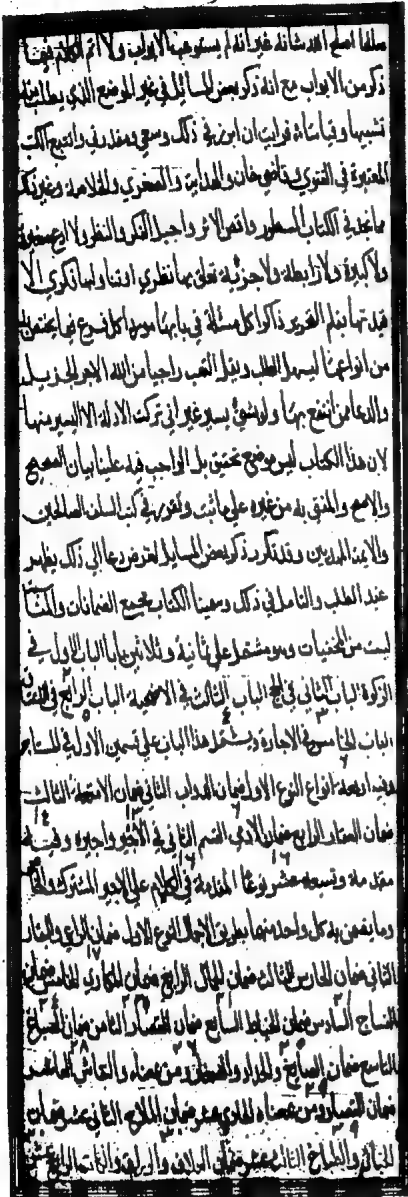 صلفا اصلح الله شانه غير انه لم يستوعب الابواب ولا اتم الكلام فيما
ذكر من الابواب مع انه ذكر بعض المسائل في غير الموضع الذي يطلب منه
تشبيها وقياسا فرايت ان ابذل في ذلك وسعي ومقدوري واتتبع الكتب
المعتبرة في الفتوى كقاضي خان والهداية والصغرى والخلاصة وغير ذلك
مما نحل في الكتاب المسطور واقص الاثر واجيل الفكر والنظر ولا ادع صغيرة
ولا كبيرة ولا رابطة ولا جزئية تعلق بها نظري او تناولها فكري الا
قيدتها بقلم التحرير ذاكرا كل مسئلة في بابها موردا كل فرع فيما يختص به
من انواعها ليسهل الطلب ويقل التعب راجيا من الله الاجر الجزيل
والدعاء ممن انتفع بها ولو بشيء يسير غير اني تركت الادلة الا اليسير منها
لان هذا الكتاب ليس موضع تحقيق بل الواجب فيه علينا بيان الصحيح
والاصح والمفتى به من غيره على ما ثبت وتقرر في كتب السلف الصالحين
والايمة المهديين وقد تكرر ذكر بعض المسايل لغرض دعا الى ذلك يظهر
عند الطلب والتامل في ذلك وسمينا الكتاب مجمع الضمانات
ليست من المختيات وهو مشتمل على ثمانية وثلاثين بابا الباب الاول في
الزكوة الباب الثاني في الحج الباب الثالث في الاضحية الباب الرابع في العتق
الباب الخامس في الاجارة ويشتمل هذا الباب على قسمين الاول في المستاجر
وفيه اربعة انواع النوع الاول ضمان الدواب الثاني ضمان الامتعة الثالث
ضمان العقار الرابع ضمان الادمي القسم الثاني في الاجير وفيه
مقدمة وتسعة عشر نوعا المقدمة في الكلام على الاجير المشترك والخاص
وما يضمن به كل واحد منهما بطريق الاجمال النوع الاول ضمان الراعي والبقار
الثاني ضمان الحارس الثالث ضمان الحمال الرابع ضمان المكاري الخامس ضمان
النساج السادس ضمان الخياط السابع ضمان القصار الثامن ضمان الصباغ
التاسع ضمان الصايغ والحداد والصفار ومن بمعناه والنقاش العاشر
ضمان الفصاد ومن بمعناه الحادي عشر ضمان الملاح الثاني عشر ضمان
الخباز والطباخ الثالث عشر ضمان العلاف والوراق والكاتب الرابع عشر